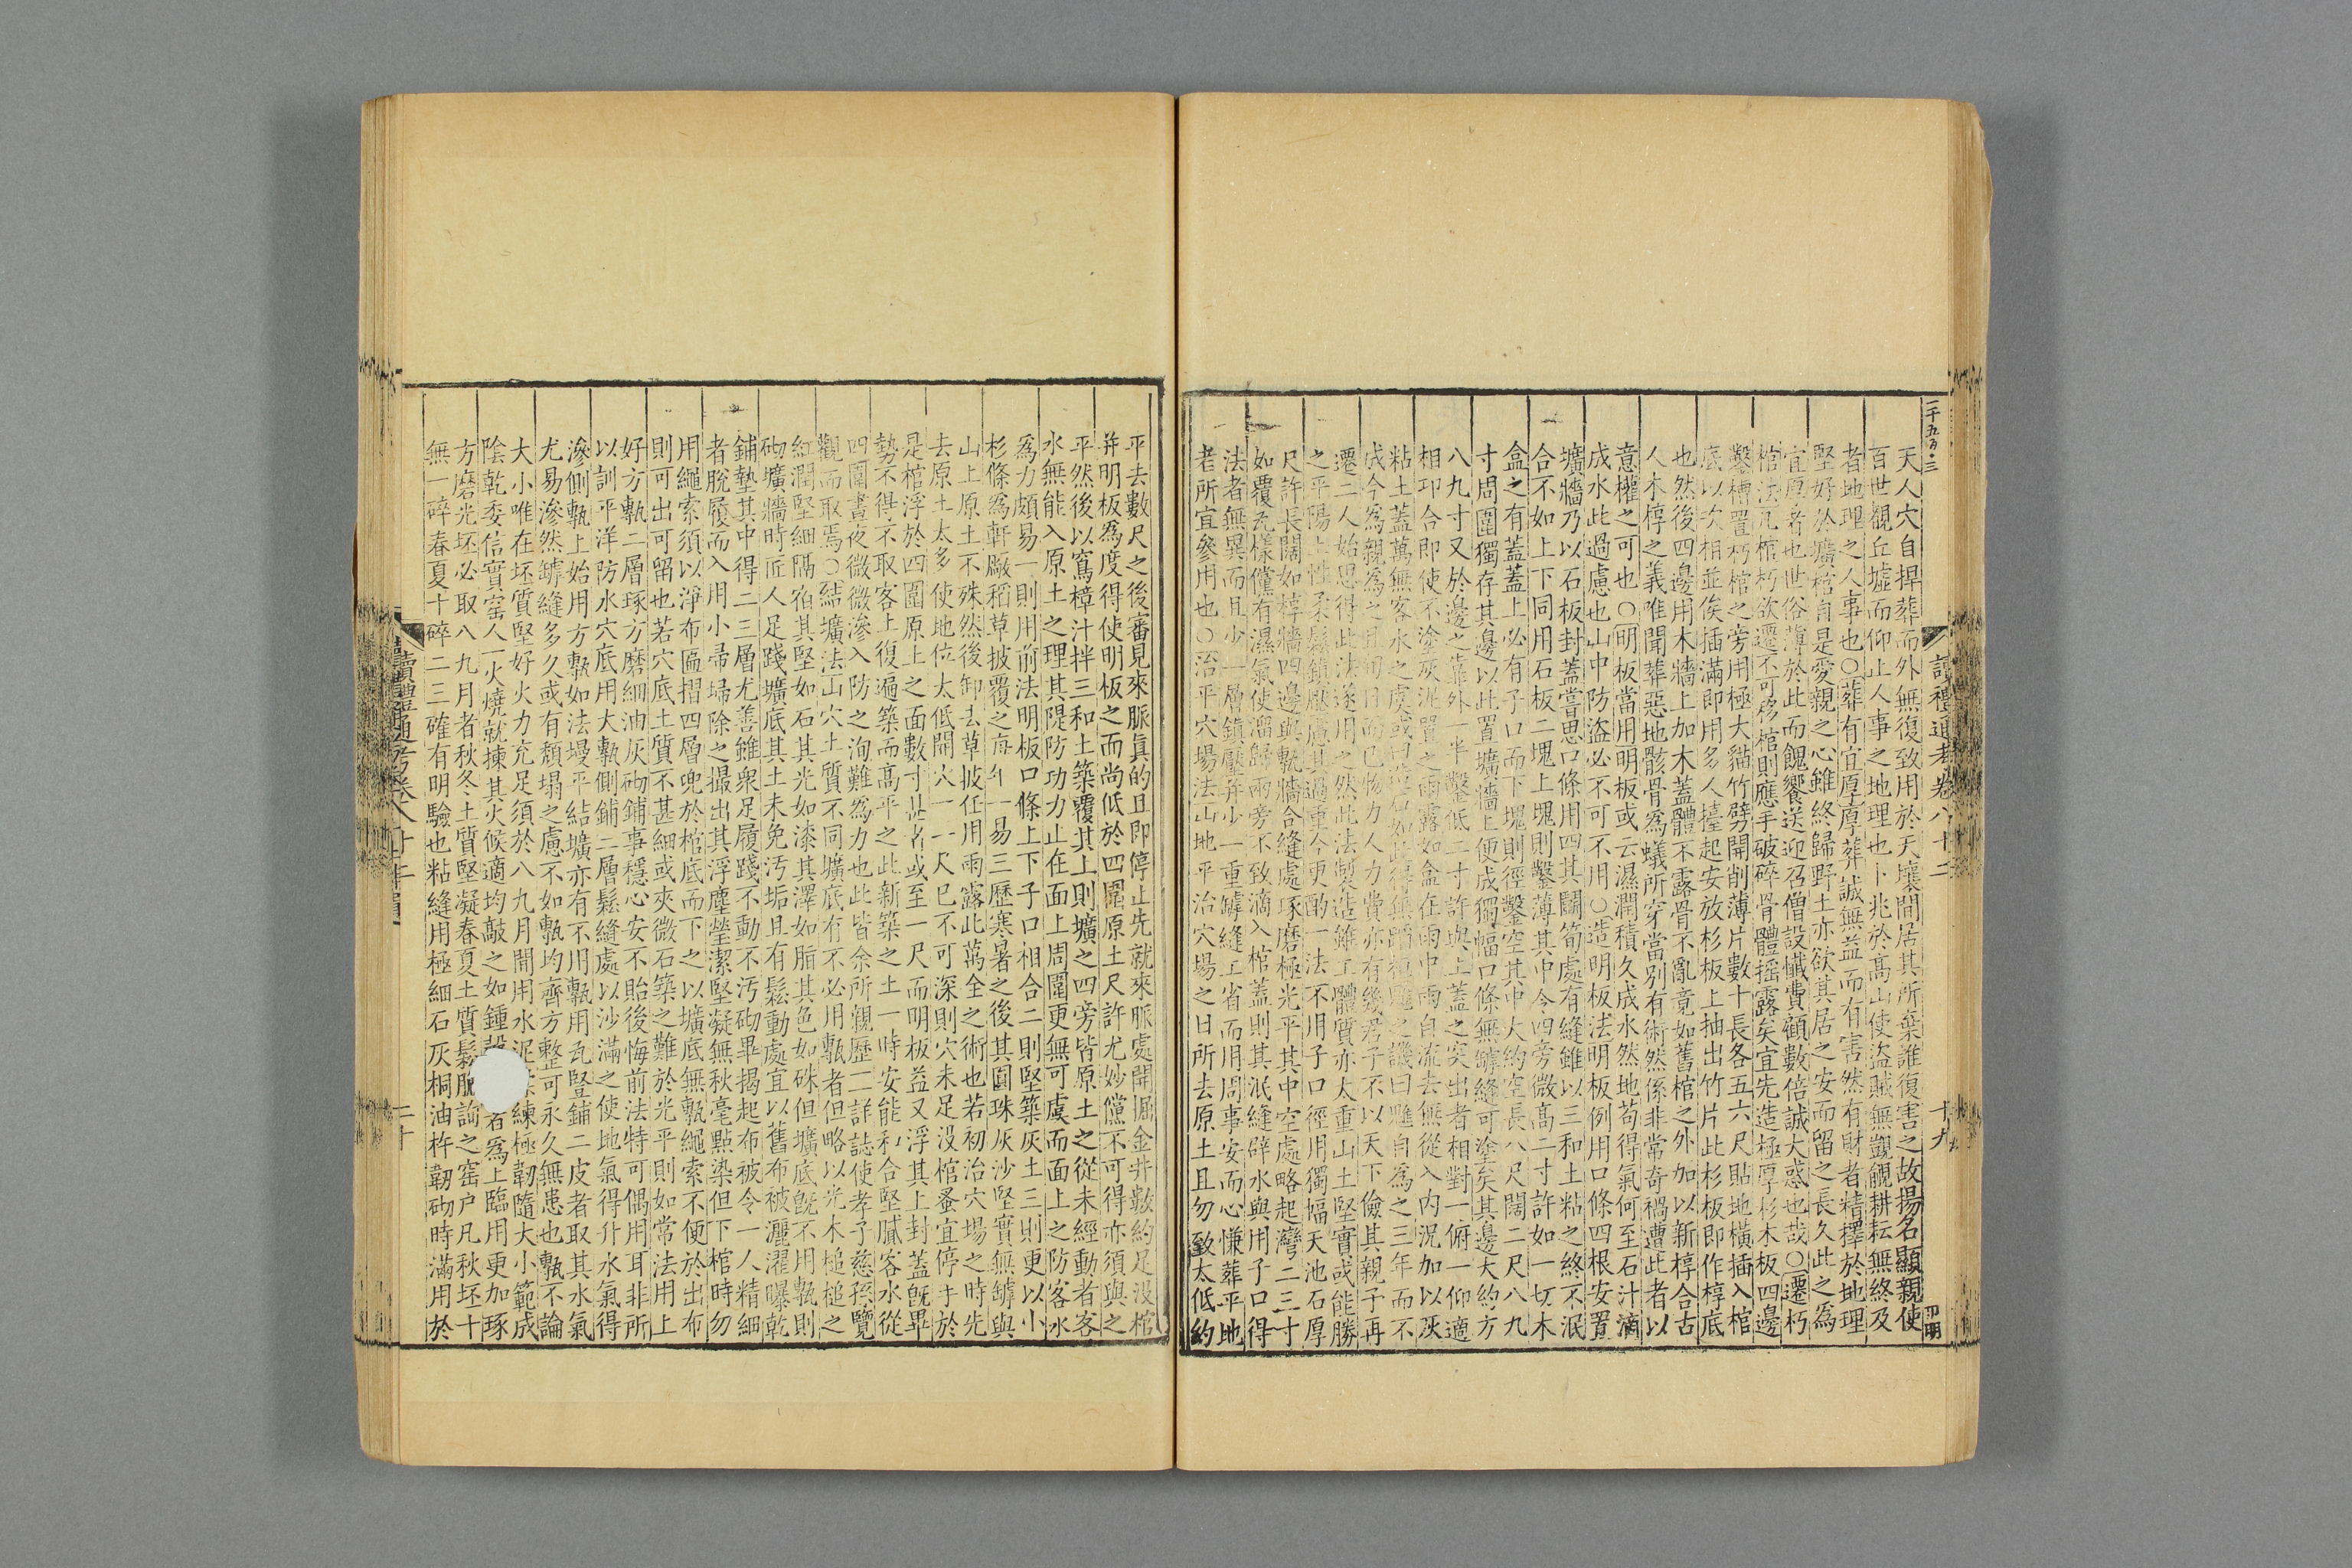 二千五百·三
讀禮通考卷八十二
十九
四明
天人穴自捍葬而外無復致用於天壤間居其所棄誰復害之故揚名顯親使
百世觀丘墟而仰止人事之地理也卜兆於高山使盜賊無覬覦耕耘無終及
者地理之人事也○葬有宜厚厚葬誠無益而有害然有財者精擇於地理
堅好於壙棺自是愛親之心雖終歸野土亦欲其居之安而留之長久此之為
宜厚者也世俗薄於此而餽饗送迎召僧設懺費顧數倍誠大惑也哉○遷朽
棺法凡棺朽欲遷不可移棺則應手破碎骨體搖露矣宜先造極厚杉木板四邊
鑿槽置朽棺之旁用極大貓竹劈開削薄片數十長各五六尺貼地橫插入棺
底以次相並俟插滿即用多人擡起安放杉板上抽出竹片此杉板即作椁底
也然後四邊用木牆上加木蓋體不露骨不亂竟如舊棺之外加以新椁合古
人木椁之義唯聞葬惡地骸骨為蟻所穿當別有術然係非常奇禍遭此者以
意權之可也○明板當用明板或云濕潤積久成水然地苟得氣何至石汁滴
成水此過慮也山中防盜必不可不用○造明板法明板例用口條四根安置
壙牆乃以石板封蓋嘗思口條用四其鬬筍處有縫雖以三和土粘之終不泯
合不如上下同用石板二塊上塊則鑿薄其中今四旁微高二寸許如一切木
盒之有蓋蓋上必有子口而下塊則徑鑿空其中大約空長八尺闊二尺八九
寸周圍獨存其邊以此置壙牆上便成獨幅口條無罅縫可塗矣其邊大約方
八九寸又於邊之靠外一半鑿低二寸許與上蓋之突出者相對一俯一仰適
相卬合即使不塗灰泥置之雨露如盒在雨中雨自流去無從入內況加以灰
粘土蓋萬無客水之虞或曰
成今為親為之且旬日而已物力人力費亦有幾君子不以天下儉其親予再
遷二人始思得此法遂用之然此法製造雖工體質亦太重山土堅實或能勝
之平陽土性柔鬆鎮壓慮其過重今更酌一法不用子口徑用獨幅天池石厚
尺許長闊如椁牆四邊與甎牆合縫處琢磨極光平其中空處略起灣二三寸
如覆瓦樣儻有濕氣使溜歸兩旁不致滴入棺蓋則其泯縫辟水與用子口得
法者無異而且少一層鎮壓并少一重罅縫工省而用周事安而心慊葬平地
者所宜參用也○治平穴場法山地平治穴場之日所去原土且勿致太低約
平去數尺之後審見來脈真的且即停止先就來脈處開掘金井數約足沒棺
并明板為度得使明板之而尚低於四圍原土尺許尤妙儻不可得亦須與之
平然後以窵樟汁拌三和土築覆其上則壙之四旁皆原土之從未經動者客
水無能入原土之理其隄防功力止在面上周圍更無可虞而面上之防客水
為力頗易一則用前法明板口條上下子口相合二則堅築灰土三則更以小
杉條為軒廠稻草披覆之每年一易三歷寒暑之後其圓珠灰沙堅實無罅與
山上原土不殊然後卸去草披任用雨露此萬全之術也若初治穴場之時先
去原土太多使地位太低開穴一一尺已不可深則穴未足沒棺蚤宜停手於
是棺浮於四圍原土之面數寸甚者或至一尺而明板益又浮其上封蓋旣畢
勢不得不取客土復遍築而高平之此新築之土一時安能和合堅膩客水從
四圍晝夜微微滲入防之洵難為力也此皆余所親歷二一詳誌使孝子慈孫覽
觀而取焉○結壙法山穴土質不同壙底有不必用甎者但略以光木槌槌之
紅潤堅細隔宿其堅如石其光如漆其澤如脂其色如硃但壙底旣不用甎則
砌壙牆時匠人足踐壙底其土未免汚垢且有鬆動處宜以舊布被灑濯曝乾
鋪墊其中得二三層尤善雖衆足履踐不動不汚砌畢揭起布被令一人精細
者脫履而入用小帚埽除之撮出其浮塵瑩潔堅凝無秋毫點染但下棺時勿
用繩索須以淨布匾摺四層兜於棺底而下之以壙底無甎繩索不便於出布
則可出可留也若穴底土質不甚細或夾微石築之難於光平則如常法用上
好方甎二層琢方磨細油灰砌鋪事穩心安不貽後悔前法特可偶用耳非所
以訓平洋防水穴底用大甎側鋪二層鬆縫處以沙滿之使地氣得升水氣得
滲側甎上始用方甎如法墁平結壙亦有不用甎用瓦豎鋪二皮者取其水氣
尤易滲然罅縫多久或有頹塌之慮不如甎均齊方整可永久無患也甎不論
大小唯在坯質堅好火力充足須於八九月開用水泥練極韌隨大小範成
陰乾委信實窰人一火燒就揀其火候適均敲之如鐘者為上臨用更加琢
方磨光坯必取八九月者秋冬土質堅凝春夏土質鬆脆詢之窰戶凡秋坯十
無一碎春夏十碎二三確有明驗也粘縫用極細石灰桐油杵韌砌時滿用於
讀禮通考卷八十二
二十